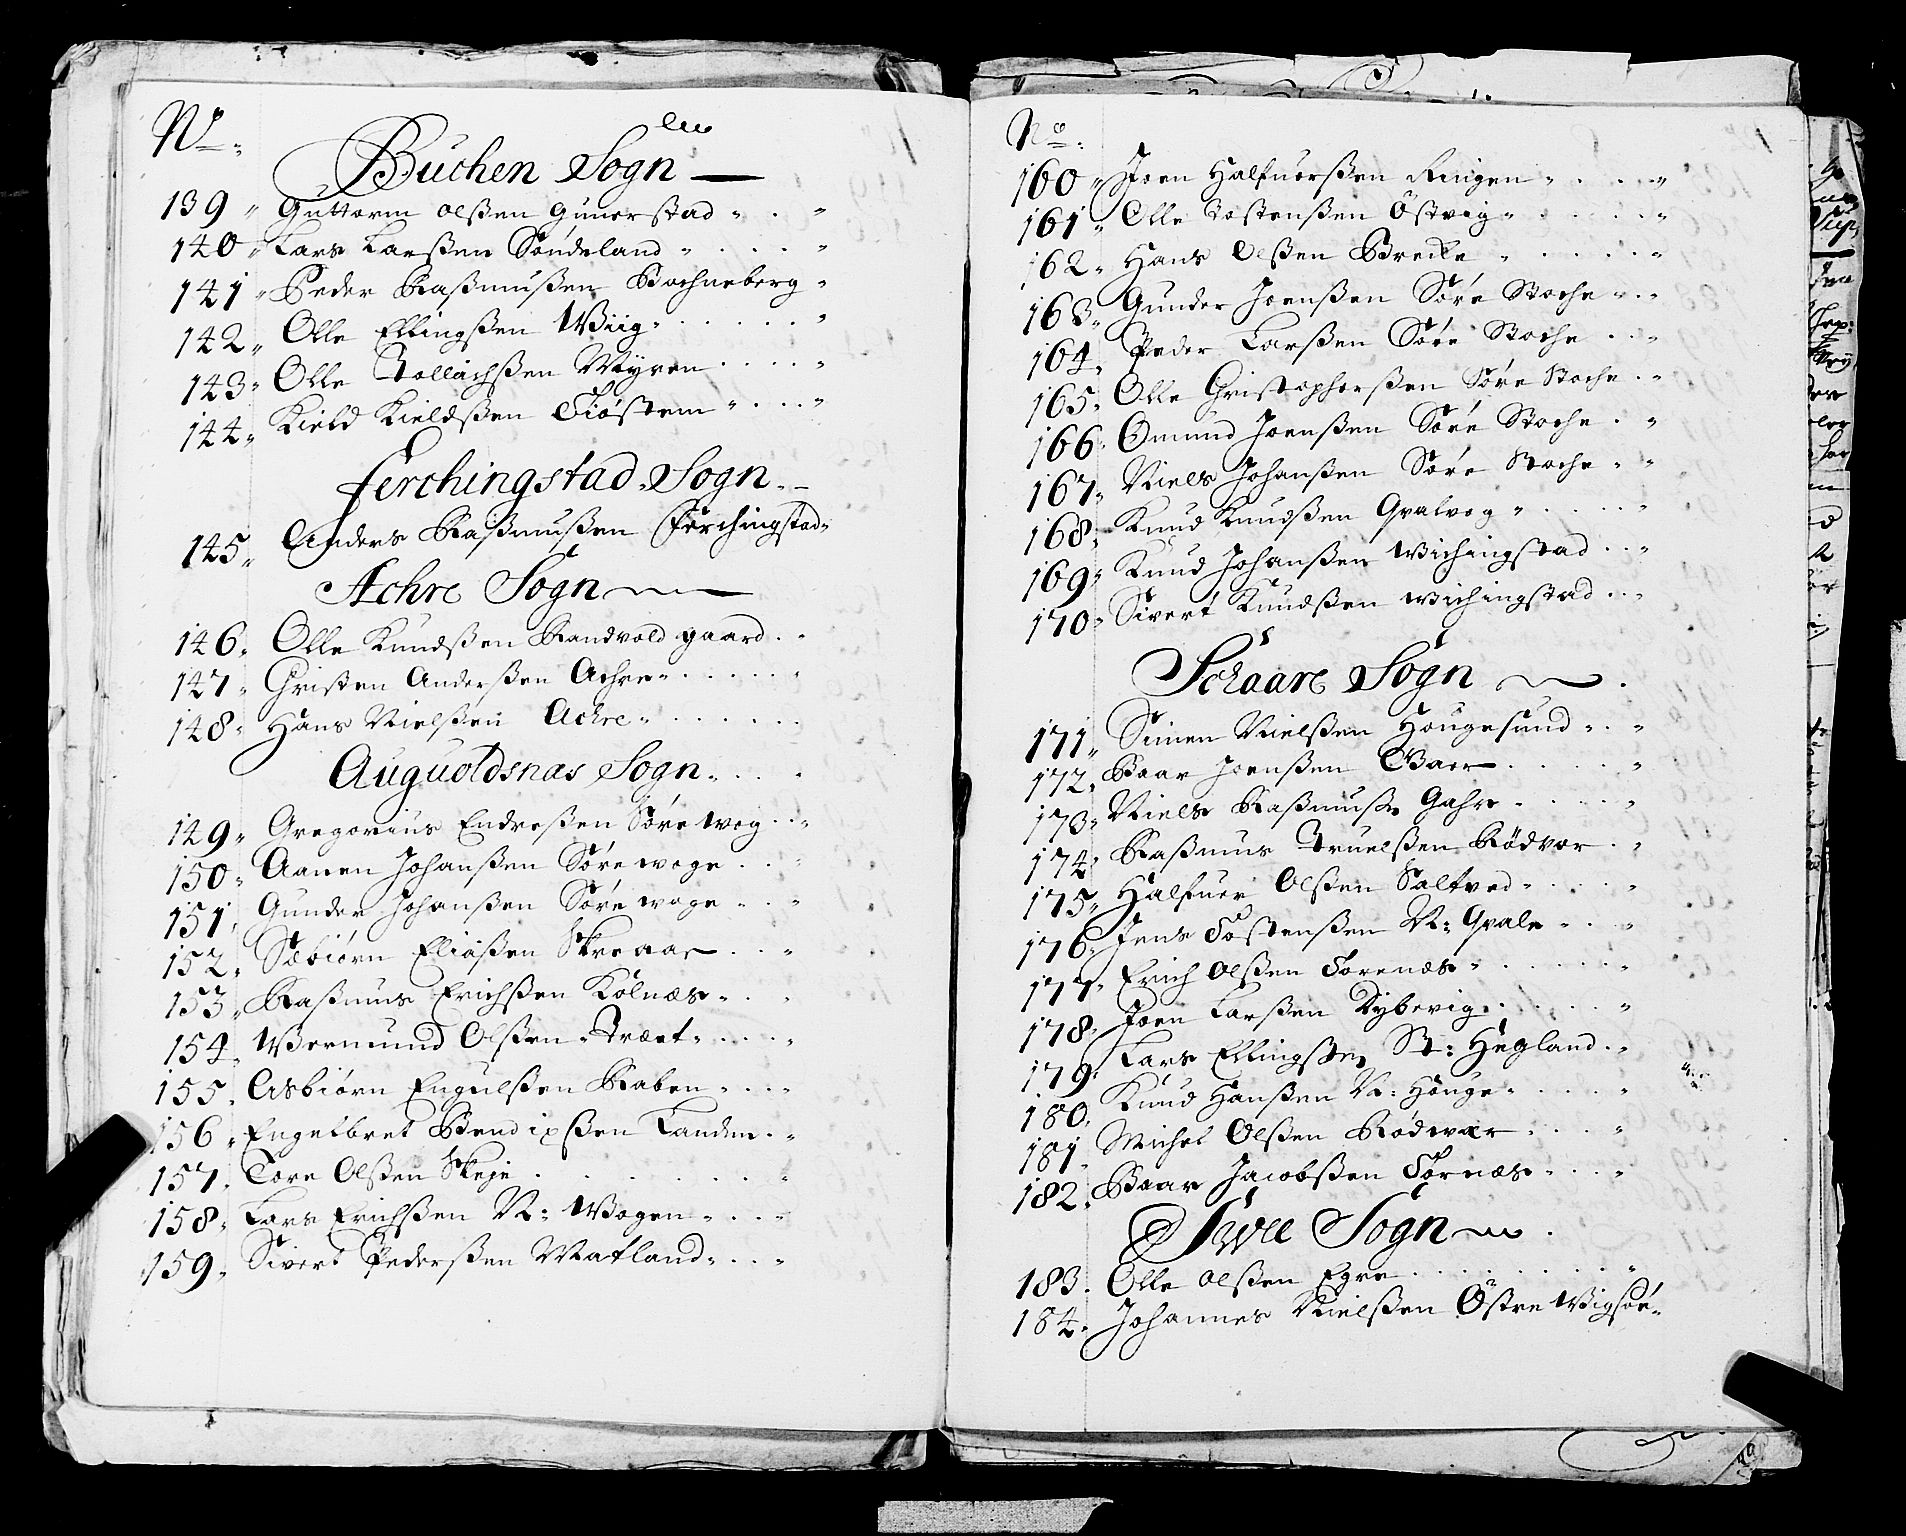 No
Buchen Sogn
139 Guttorm Olßen Gunerstad
140 Lars Larßen Sündeland
141 Peder Raßmußen Bochneberg
142 Olle Ellingßen Wiig
143 Olle Tollachßen Myren
144 Kield Kieldßen Siøstem
Ferchingstad Sogn
145 Anders Raßmußen Ferchingstad
Achre Sogn
146 Olle Knudßen Randvold gaard
147 Christen Anderßen Achre
148 Hans Nielßen Achre
Auguoldsnas Sogn
149 Gregorius Endreßen Søre wog
150 Aanen Johanßen Søre woge
151 Gunder Johanßen Søre woge
152 Sæbiørn Eliaßen Skreaar
153 Raßmus Erichßen Kolnæs
154 Wermund Olßen Træet
155 Asbiørn Engulßen Raben
156 Engelbret Bendixßen Landen
157 Tore Olßen Skeje
158 Lars Erichßen N: Wogen
159 Sivert Pederßen Matland
No
160 Joen Halfuorßen Ringen
161 Olle Tostenßen Østvig
162 Hans Olßen Brecke
163 Gunder Joenßen Søre Stoche
164 Peder Larßen Søre Stoche
165 Olle Christopherßen Søre Stoche
166 Omund Joenßen Søre Stoche
167 Niels Johanßen Søre Stoche
168 Knud Knudßen Qvalvog
169 Knud Johanßen Wichingstad
170 Sivert Knudßen Wichingstad
Schaare Sogn
171 Simen Nielßen Hougesund
172 Baar Joenßen
173 Niels Raßmuß Gahre
174 Raßmus Truelßen Rødvor
175 Halfuer Olßen Saltved
176 Jens Tostenßen N: Qvale
177 Erich Olßen Torenæs
178 Joen Larßen Dybevig
179 Lars Ellingßen St: Hegland
180 Knud Hanßen N: Houge
181 Michel Olßen Rødwær
182 Baar Jacobßen Tornæs
Sogn
183 Olle Olßen Egre
184 Johannes Nielßen Østre Wigsøe